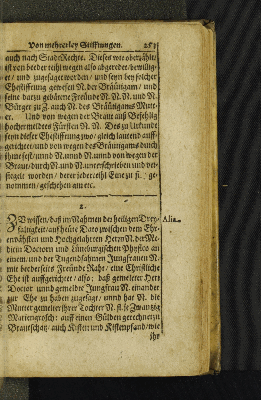 Von mehrerley Stifftungen. 253
auch nach StadtRechte. Dieses wie oberzählt/
ist von beyder seiths wegen also abgeredet/ bewillig-
et/ und zugesaget worden/ und seyn bey solcher
Ehestifftung gewesen N. der Bräutigam/ und
seine darzu gebätene Freunde N. N. und N.
Bürger zu Z. auch N. des Bräutigams Mutt-
er. Und von wegen der Braut auß Befehlig
hochermeltes Fürsten N. N. Des zu Urkunde
seyn dieser Ehestifftung zwo/ gleich lautend auff-
gerichtet/ und von wegen des Bräutigams durch
ihme selbst/ unnd N. unnd N. unnd von wegen der
Braut/ durch N. und N. unterschrieben und ver-
siegelt worden/ derer jedertheil Eine zu sich ge-
nommen/ geschehen am etc.
2.
ZU wissen/ daß im Nahmen der heiligen Drey- Alia.
faltigkeit/ auff heute Dato zwischen dem Ehr-
enveßten und Hochgelahrten Herrn N. der Me-
dicin Doctorn und Lüneburgischen Physico an
einem/ und der Tugendsahmen Jungfrauen N.
mit beyderseits Freunde Raht/ eine Christliche
Ehe ist auffgerichtet/ also; daß gemelter Herr
Doctor unnd gemeldte Jungfrau N. einander
zur Ehe zu haben zugesagt/ unnd hat N. die
Mutter gemelter ihrer Tochter N. fl. je Zwantzig
Mariengrosch: auff einen Gülden gerechnet zu
Brautschatz/ auch Kisten und Kistenpfand/ wie
ihr